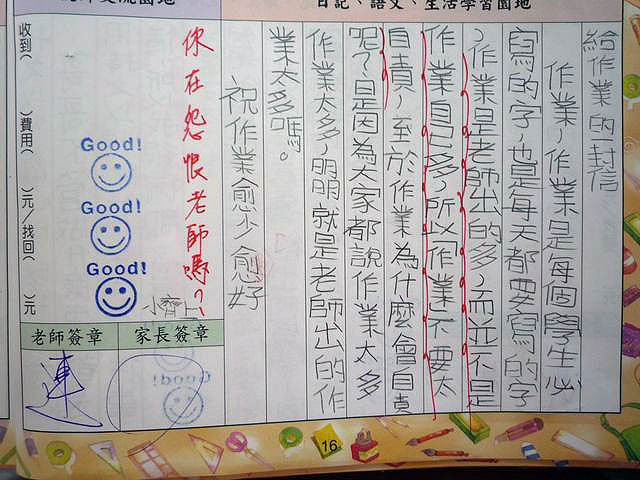 日記、語文、生活學習園地
給作業的封信
作業，作業是每個學生必
寫的字，也是每天都要寫的字
，作業是老師出的多，而並不是
作業自己多，所以「作業」不要太
自責，至於作業為什麼會自責
呢？是因為大家都說作業太多
作業太多，明明就是老師出的作
業太多嗎。
祝作業愈少愈好
小齊上
交流園地
你在怨恨老師嗎？
Good!
Good!
Good!
收到( )費用( )元/找回( )元
家長簽章
老師簽章
Good!
連
16